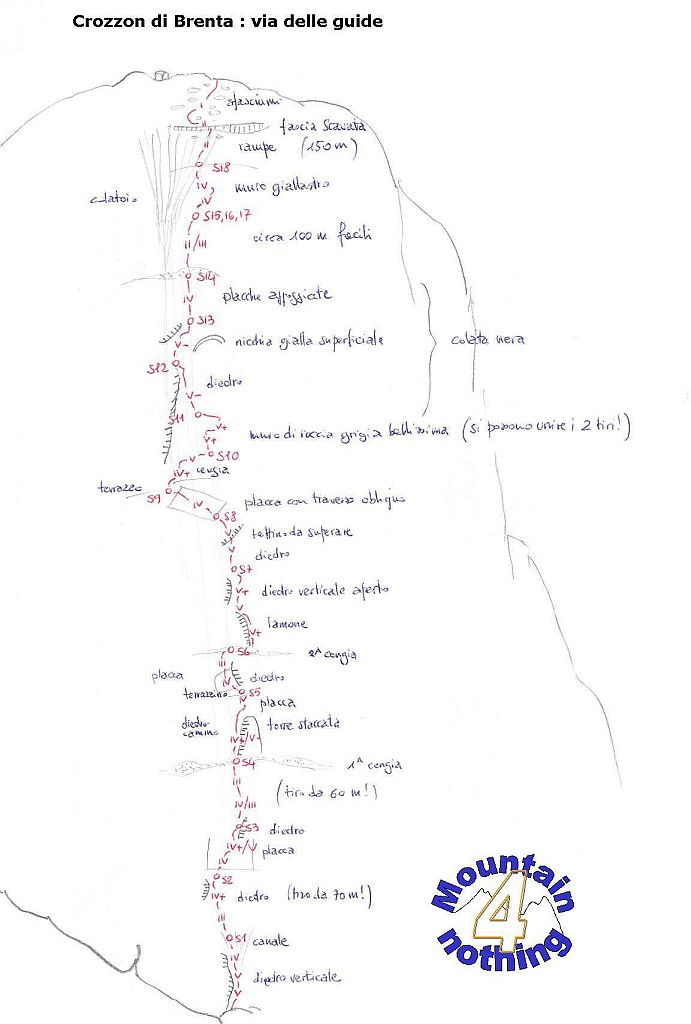 Crozzon di Brenta : via delle guide
sfasciumi
II
fascia scavata
II
rampe (150 m)
S18
IV
muro giallastro
colatoio
IV
S15,16,17
II/III
circa 100 m facili
S14
IV
placche appoggiate
S13
V-
nicchia gialla superficiale
colata nera
S12
diedro
V-
S11
V+
V+
muro di roccia grigia bellissima (si possono unire i 2 tiri!)
V
S10
IV+
cengia
terrazzo
S9
IV
placca con traverso obliquo
S8
V
tettino da superare
V
diedro
S7
V+
diedro verticale aperto
V
lamone
V+
S6
2ª cengia
III
placca
IV
diedro
terrazzino
S5
IV
placca
diedro
camino
torre staccata
IV+/V-
S4
1ª cengia
III
(tiro da 60 m!)
IV/III
S3
diedro
IV+/V
placca
IV
S2
IV+
diedro (tiro da 70 m!)
III
S1
canale
V
diedro verticale
V
Mountain
4
nothing